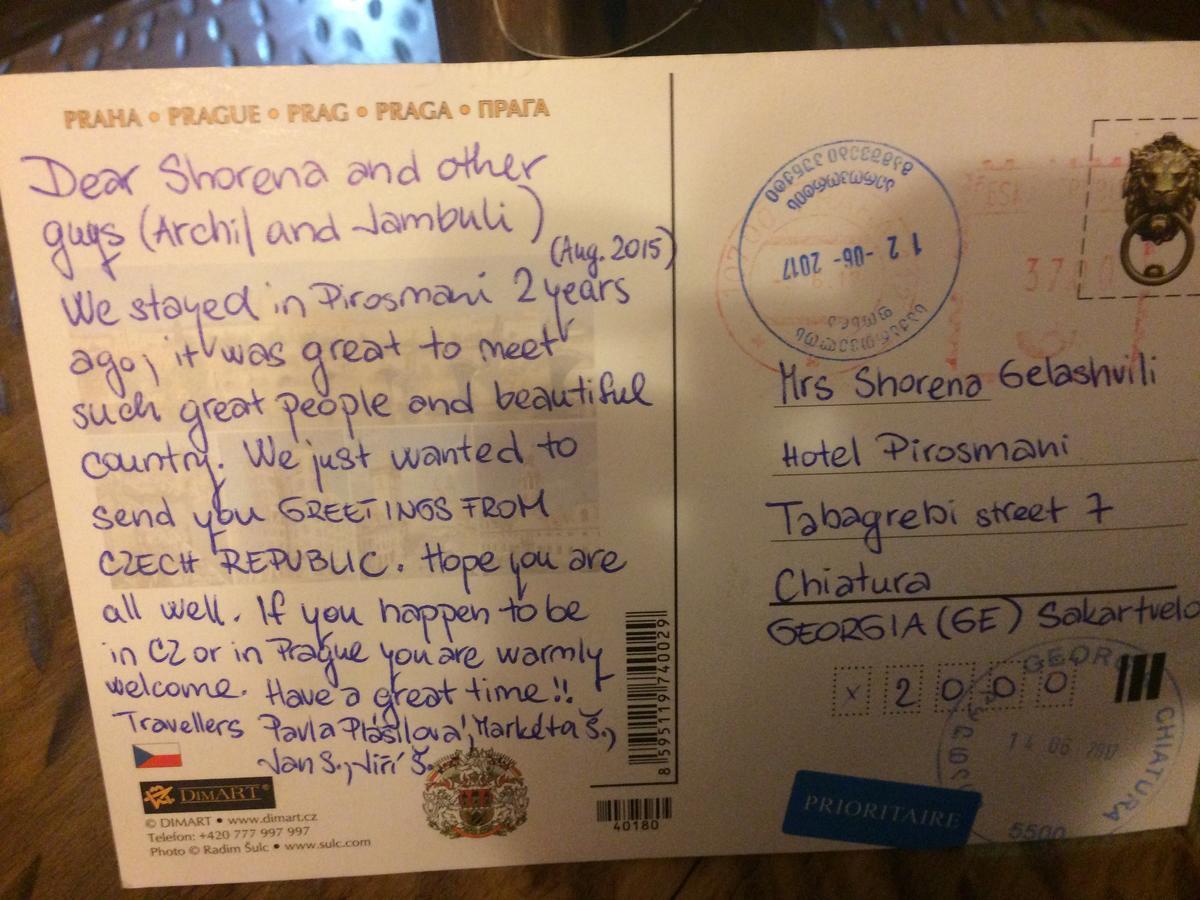 PRAHA • PRAGUE • PRAG • PRAGA • ПРАГА
Dear Shorena and other
guys (Archil and Jambuli)
(Aug. 2015)
We stayed in Pirosmani 2 years
ago, it was great to meet
such great people and beautiful
country. We just wanted to
send you GREETINGS FROM
CZECH REPUBLIC. Hope you are
all well. If you happen to be
in CZ or in Prague you are warmly
welcome. Have a great time!!
Travellers Pavla Plášilová, Markéta Š.,
Jan S., Jiří Š.
DIMART
© DIMART • www.dimart.cz
Telefon: +420 777 997 997
Photo © Radim Šulc • www.sulc.com
8595119740029
40180
12-06-2017
Mrs Shorena Gelashvili
Hotel Pirosmani
Tabagrebi street 7
Chiatura
GEORGIA (GE) Sakartvelo
x 2000
GEOR
CHIATURA
14 06 2017
5500
PRIORITAIRE